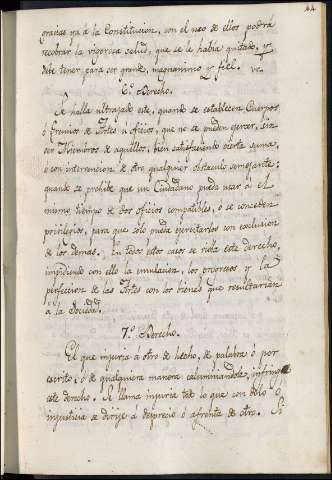 44
gracias ya á la Constitucion, con el uso de ellos podrá
recobrar la vigorosa salud, que se le habia quitado, y
debe tener para ser grande, magnanimo y fiel.
6.º Derecho.
Se halla ultrajado este, quando se establecen Cuerpos
ó Gremios de Artes u oficios, que no se pueden ejercer, sin
ser Miembros de aquellos, bien satisfaciendo cierta suma,
o con intervencion de otro qualquier obstaculo semejante:
quando se prohibe que un Ciudadano pueda usar á el
mismo tiempo de dos oficios compatibles, ó se conceden
privilegios, para que solo pueda ejercitarlos con exclusion
de los demas. En todos estos casos se viola este derecho,
impidiendo con ello la emulacion, los progresos y la
perfeccion de las Artes con los bienes que resultarian
á la Sociedad.
7.º Derecho.
El que injuria á otro de hecho, de palabra ó por
escrito, ó de qualquiera manera calumniandole, infringe
este derecho. Se llama injuria todo lo que con dolo ó
injusticia se dirije á desprecio ó afrenta de otro. Si